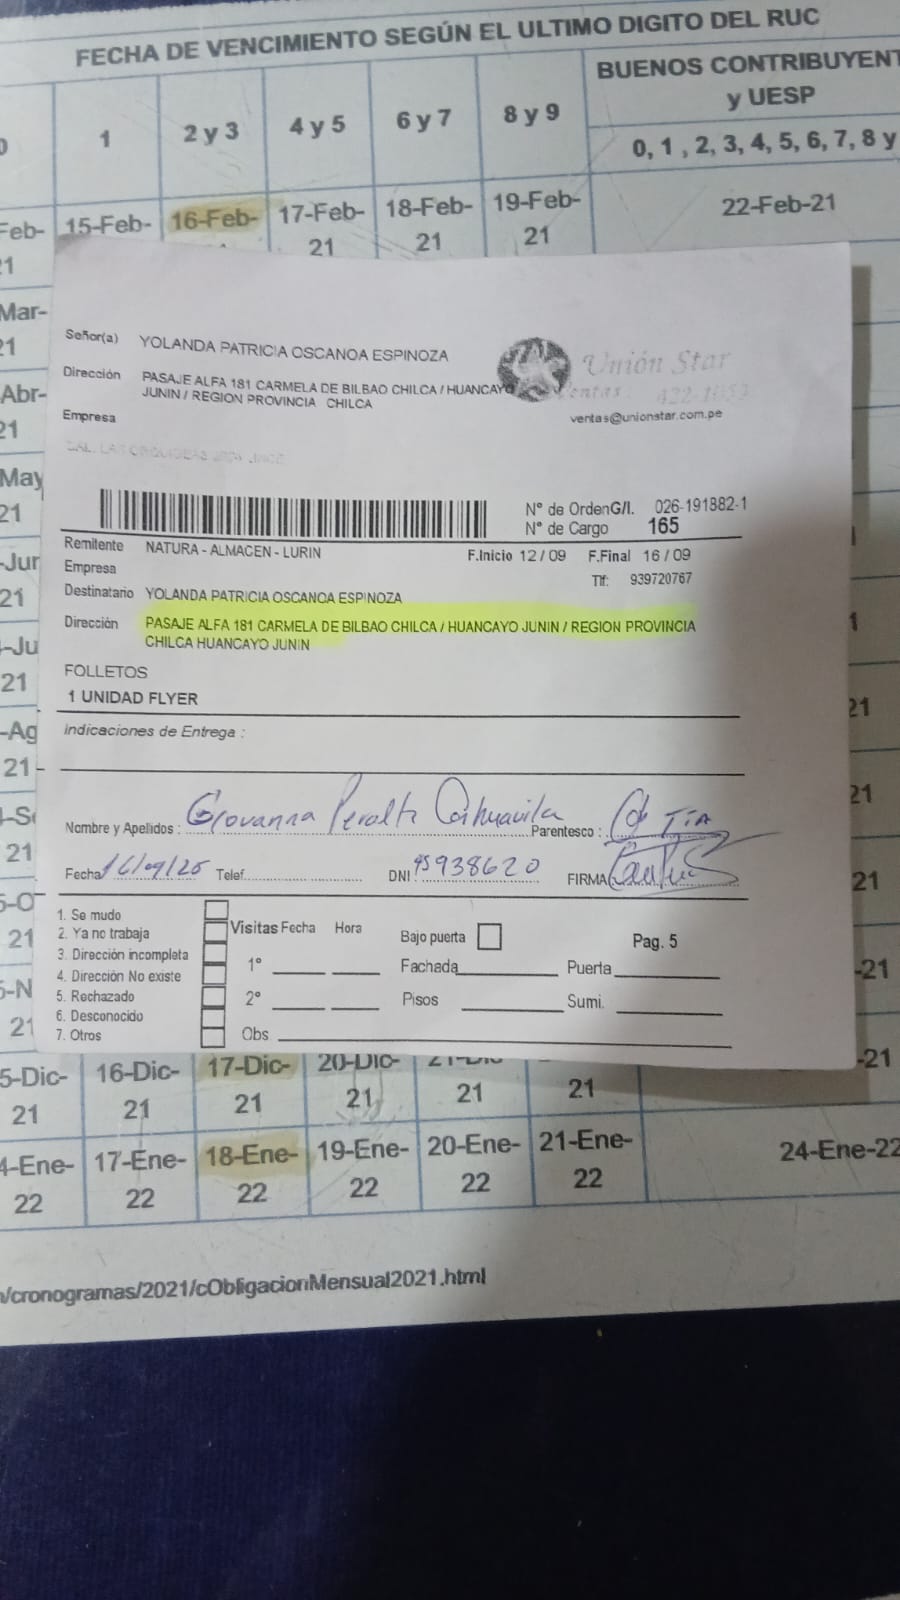 FECHA DE VENCIMIENTO SEGÚN EL ULTIMO DIGITO DEL RUC
BUENOS CONTRIBUYENT
y UESP
1 2 y 3 4 y 5 6 y 7 8 y 9
0, 1 , 2, 3, 4, 5, 6, 7, 8 y
Feb- 15-Feb- 16-Feb- 17-Feb- 18-Feb- 19-Feb- 22-Feb-21
21 21 21 21
Mar-
21
Abr-
21
May
21
-Jur
21
-Ju
21
-Ag
21
21
21
21
Señor(a) YOLANDA PATRICIA OSCANOA ESPINOZA
Unión Star
Dirección PASAJE ALFA 181 CARMELA DE BILBAO CHILCA / HUANCAYO
JUNIN / REGION PROVINCIA CHILCA
Ventas:
Empresa
ventas@unionstar.com.pe
N° de OrdenG/I. 026-191882-1
N° de Cargo 165
Remitente NATURA - ALMACEN - LURIN
F.Inicio 12 / 09 F.Final 16 / 09
Empresa
Tlf: 939720767
Destinatario YOLANDA PATRICIA OSCANOA ESPINOZA
Dirección PASAJE ALFA 181 CARMELA DE BILBAO CHILCA / HUANCAYO JUNIN / REGION PROVINCIA
CHILCA HUANCAYO JUNIN
FOLLETOS
1 UNIDAD FLYER
Indicaciones de Entrega :
Nombre y Apellidos : Giovanna Peralta Parentesco : Tia
Fecha 16/09/25 Telef. DNI 45938620 FIRMA
1. Se mudo
2. Ya no trabaja
3. Dirección incompleta
4. Dirección No existe
5. Rechazado
6. Desconocido
7. Otros
Visitas Fecha Hora
1°
2°
Obs
Bajo puerta Pag. 5
Fachada Puerta
Pisos Sumi.
21
21
21
-21
-21
5-Dic- 16-Dic- 17-Dic- 20-Dic- 21-Dic-
21 21 21 21 21 21
4-Ene- 17-Ene- 18-Ene- 19-Ene- 20-Ene- 21-Ene- 24-Ene-22
22 22 22 22 22 22
/cronogramas/2021/cObligacionMensual2021.html